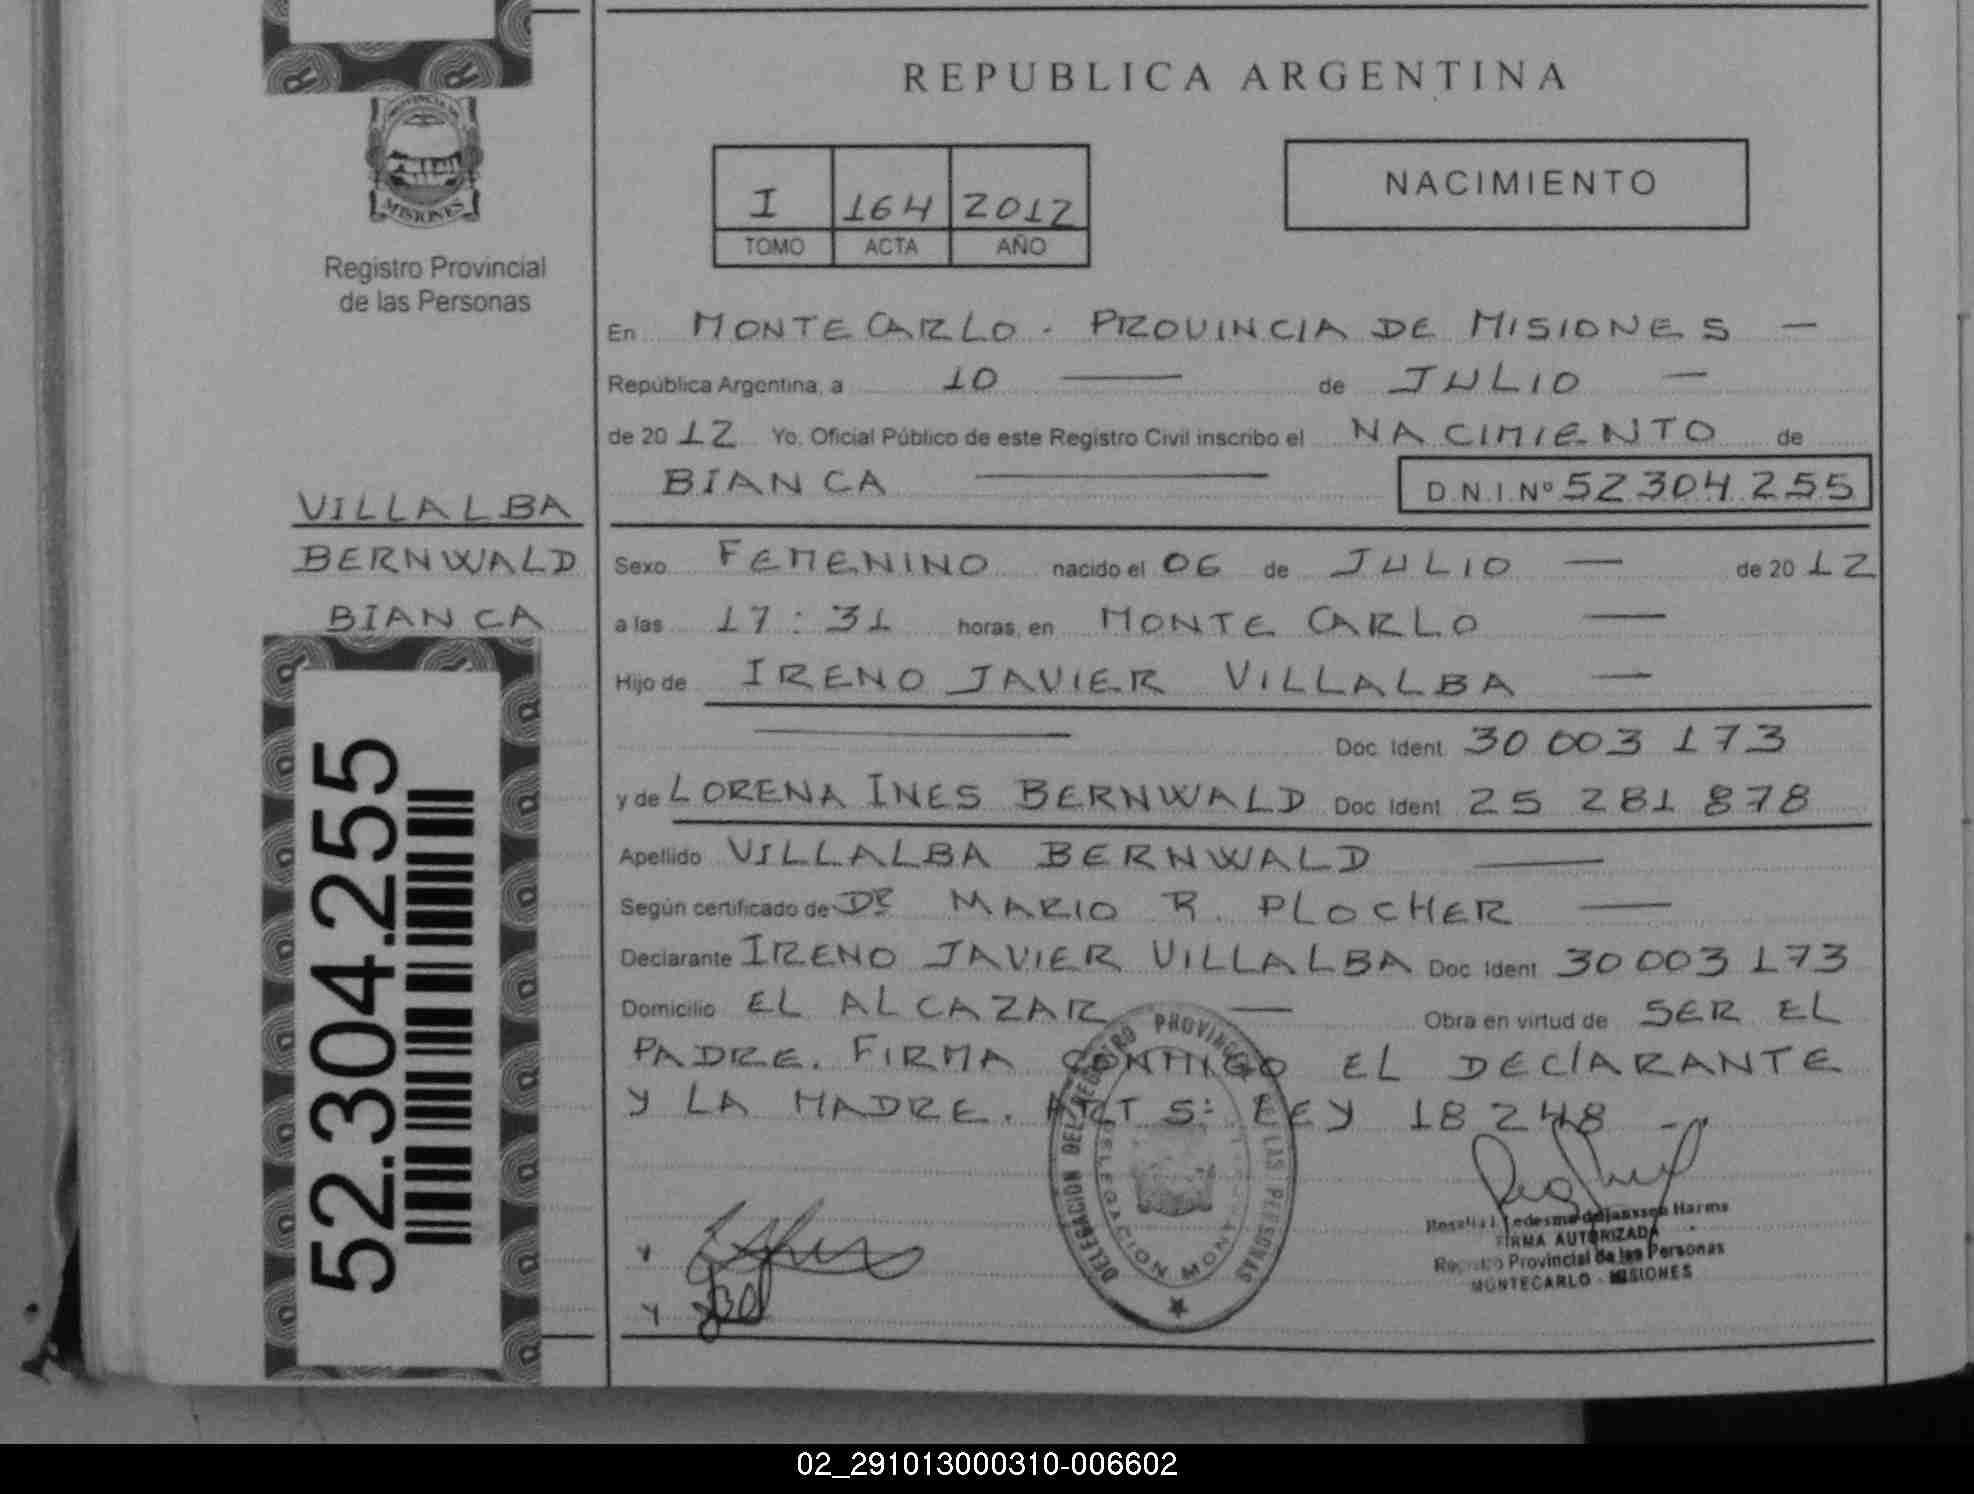 REPUBLICA ARGENTINA
PROVINCIA DE
MISIONES
Registro Provincial
de las Personas
I 164 2012
TOMO ACTA AÑO
NACIMIENTO
En MONTECARLO - PROVINCIA DE MISIONES —
República Argentina, a 10 — de JULIO —
de 20 12 Yo, Oficial Público de este Registro Civil inscribo el NACIMIENTO de
BIANCA — D.N.I. Nº 52304255
VILLALBA
BERNWALD
BIANCA
Sexo FEMENINO nacido el 06 de JULIO — de 20 12
a las 17:31 horas, en MONTE CARLO —
Hijo de IRENO JAVIER VILLALBA —
— Doc. Ident. 30 003 173
y de LORENA INES BERNWALD Doc. Ident. 25 281 878
Apellido VILLALBA BERNWALD —
Según certificado de DR MARIO R. PLOCHER —
Declarante IRENO JAVIER VILLALBA Doc. Ident. 30 003 173
Domicilio EL ALCAZAR — Obra en virtud de SER EL
PADRE. FIRMA CONMIGO EL DEClARANTE
Y LA MADRE. ART 5º LEY 18 248 -
52.304.255
DELEGACION DEL REGISTRO PROVINCIAL DE LAS PERSONAS
DELEGACION
Ledesma de Janssen Harms
FIRMA AUTORIZADA
Registro Provincial de las Personas
MONTECARLO - MISIONES
02_291013000310-006602